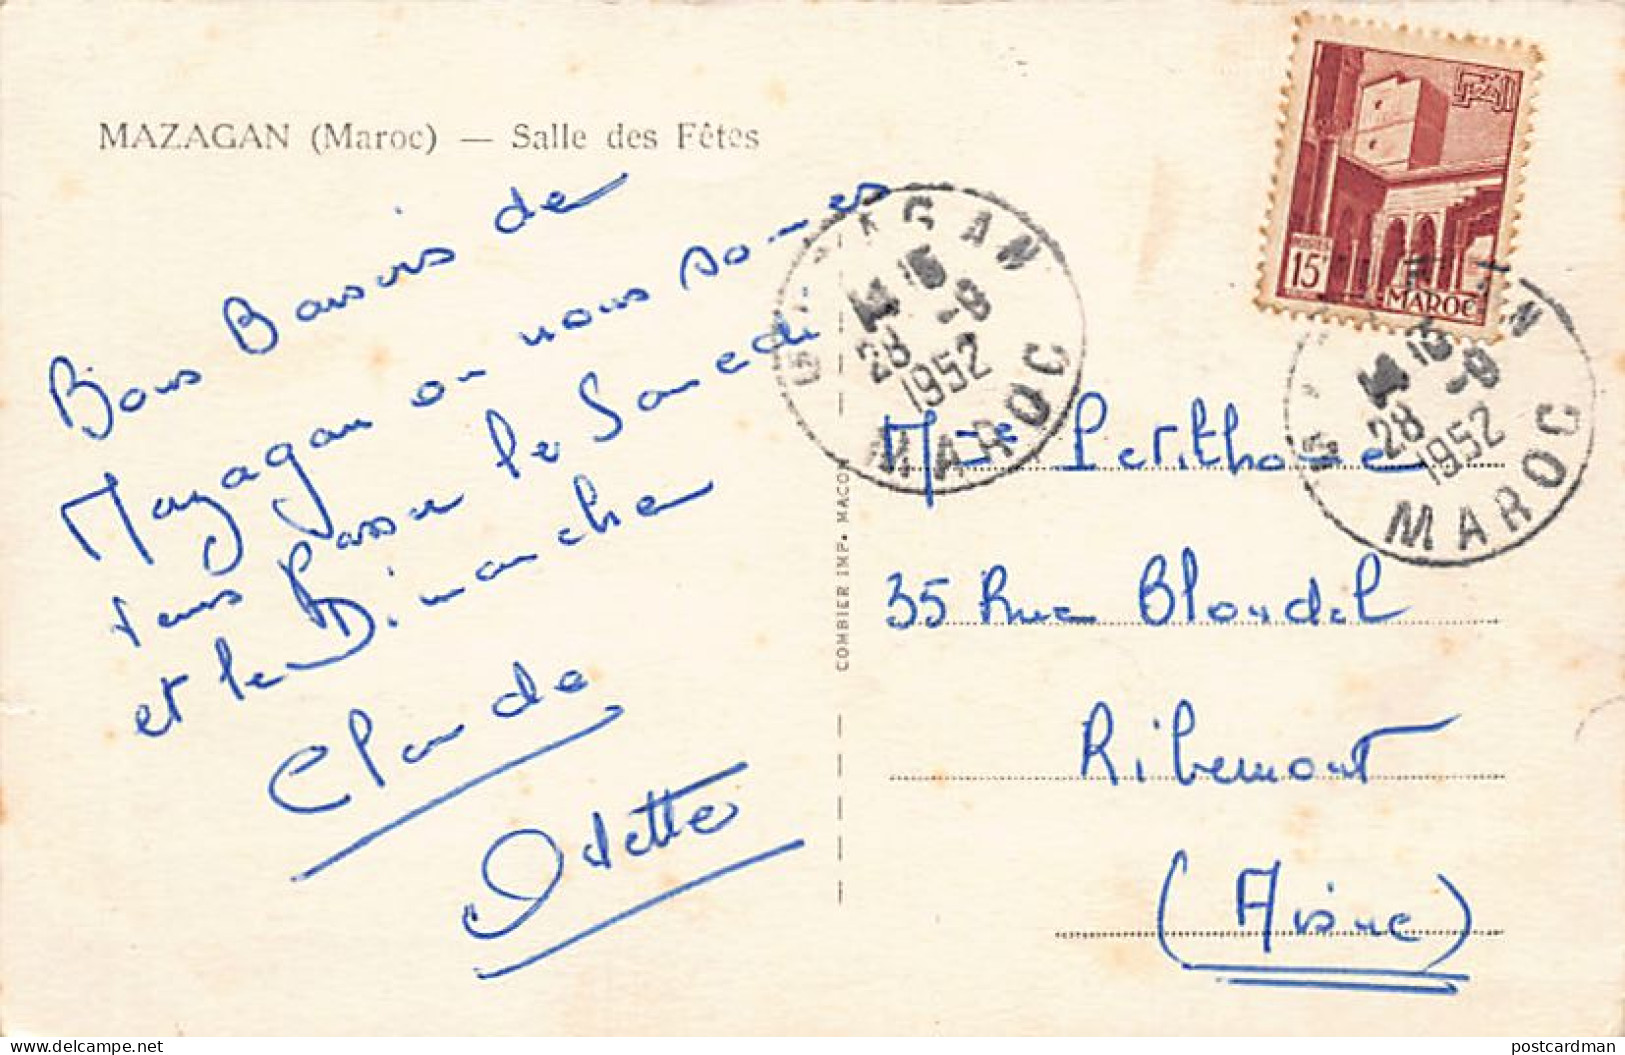 MAZAGAN (Maroc) — Salle des Fêtes
Bons Baisers de
Mazagan ou nous sommes
venus Passer le Samedi
et le Dimanche
Claude
Odette
COMBIER IMP. MACON
MAZAGAN
15
28 -9
1952
MAROC
POSTES
15F
MAROC
MAZAGAN
15
28 -9
1952
MAROC
Mme Perithome
35 Rue Blondel
Ribemont
(Aisne)
www.delcampe.net
postcardman